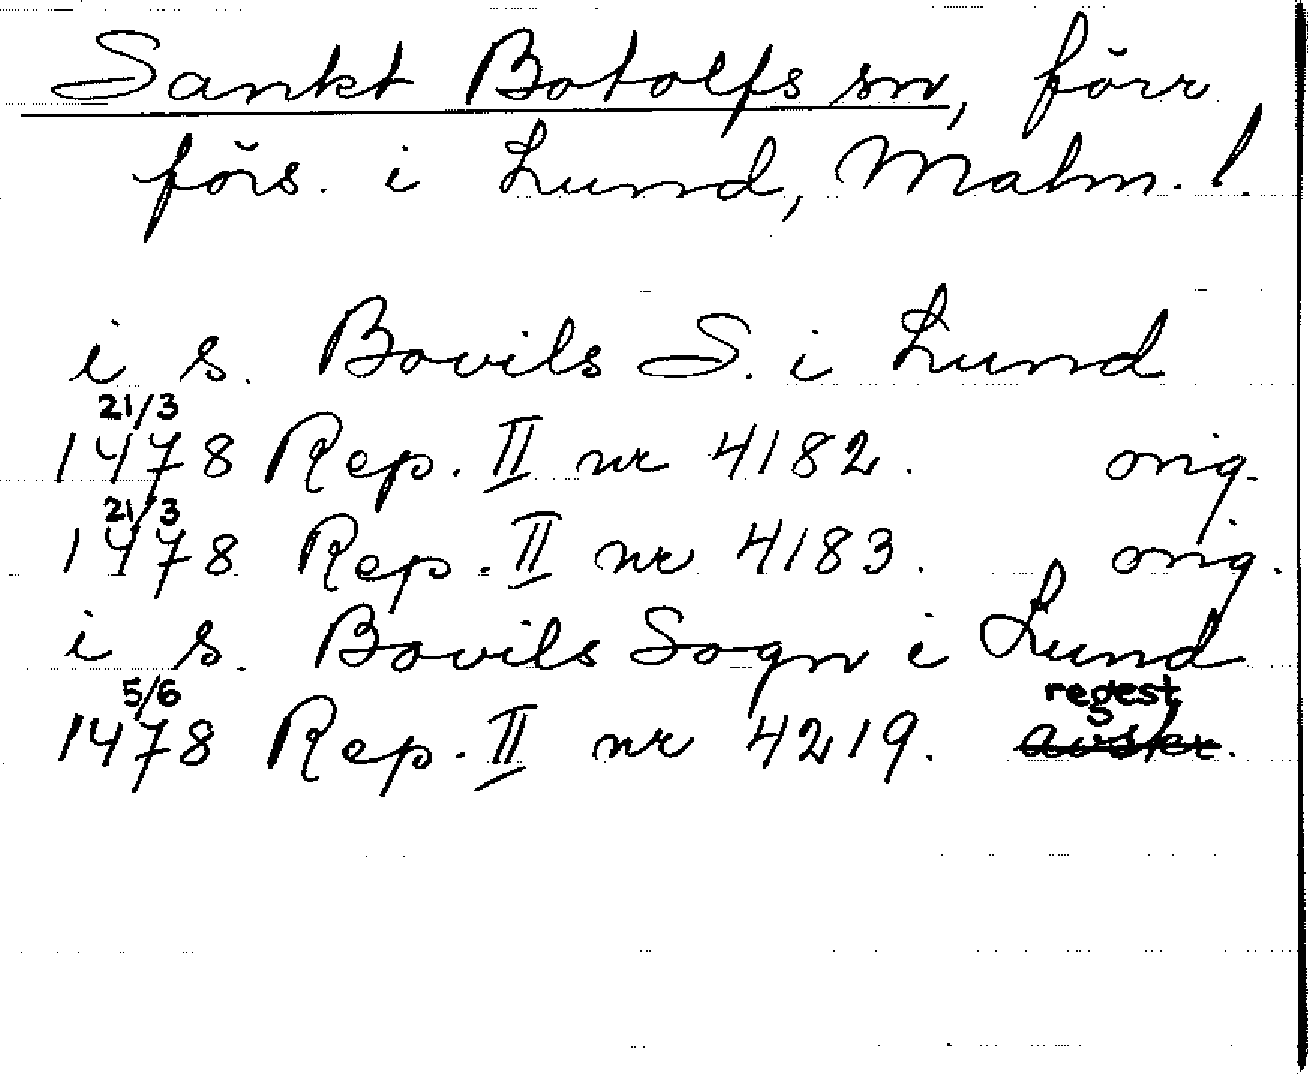 Sankt Botolfs sn, förr
förs. i Lund, Malm. l.
i s. Bovils S. i Lund
21/3
1478 Rep. II nr 4182. orig.
21/3
1478 Rep. II nr 4183. orig.
i s. Bovils Sogn i Lund
5/6 regest
1478 Rep. II nr 4219. avskr.